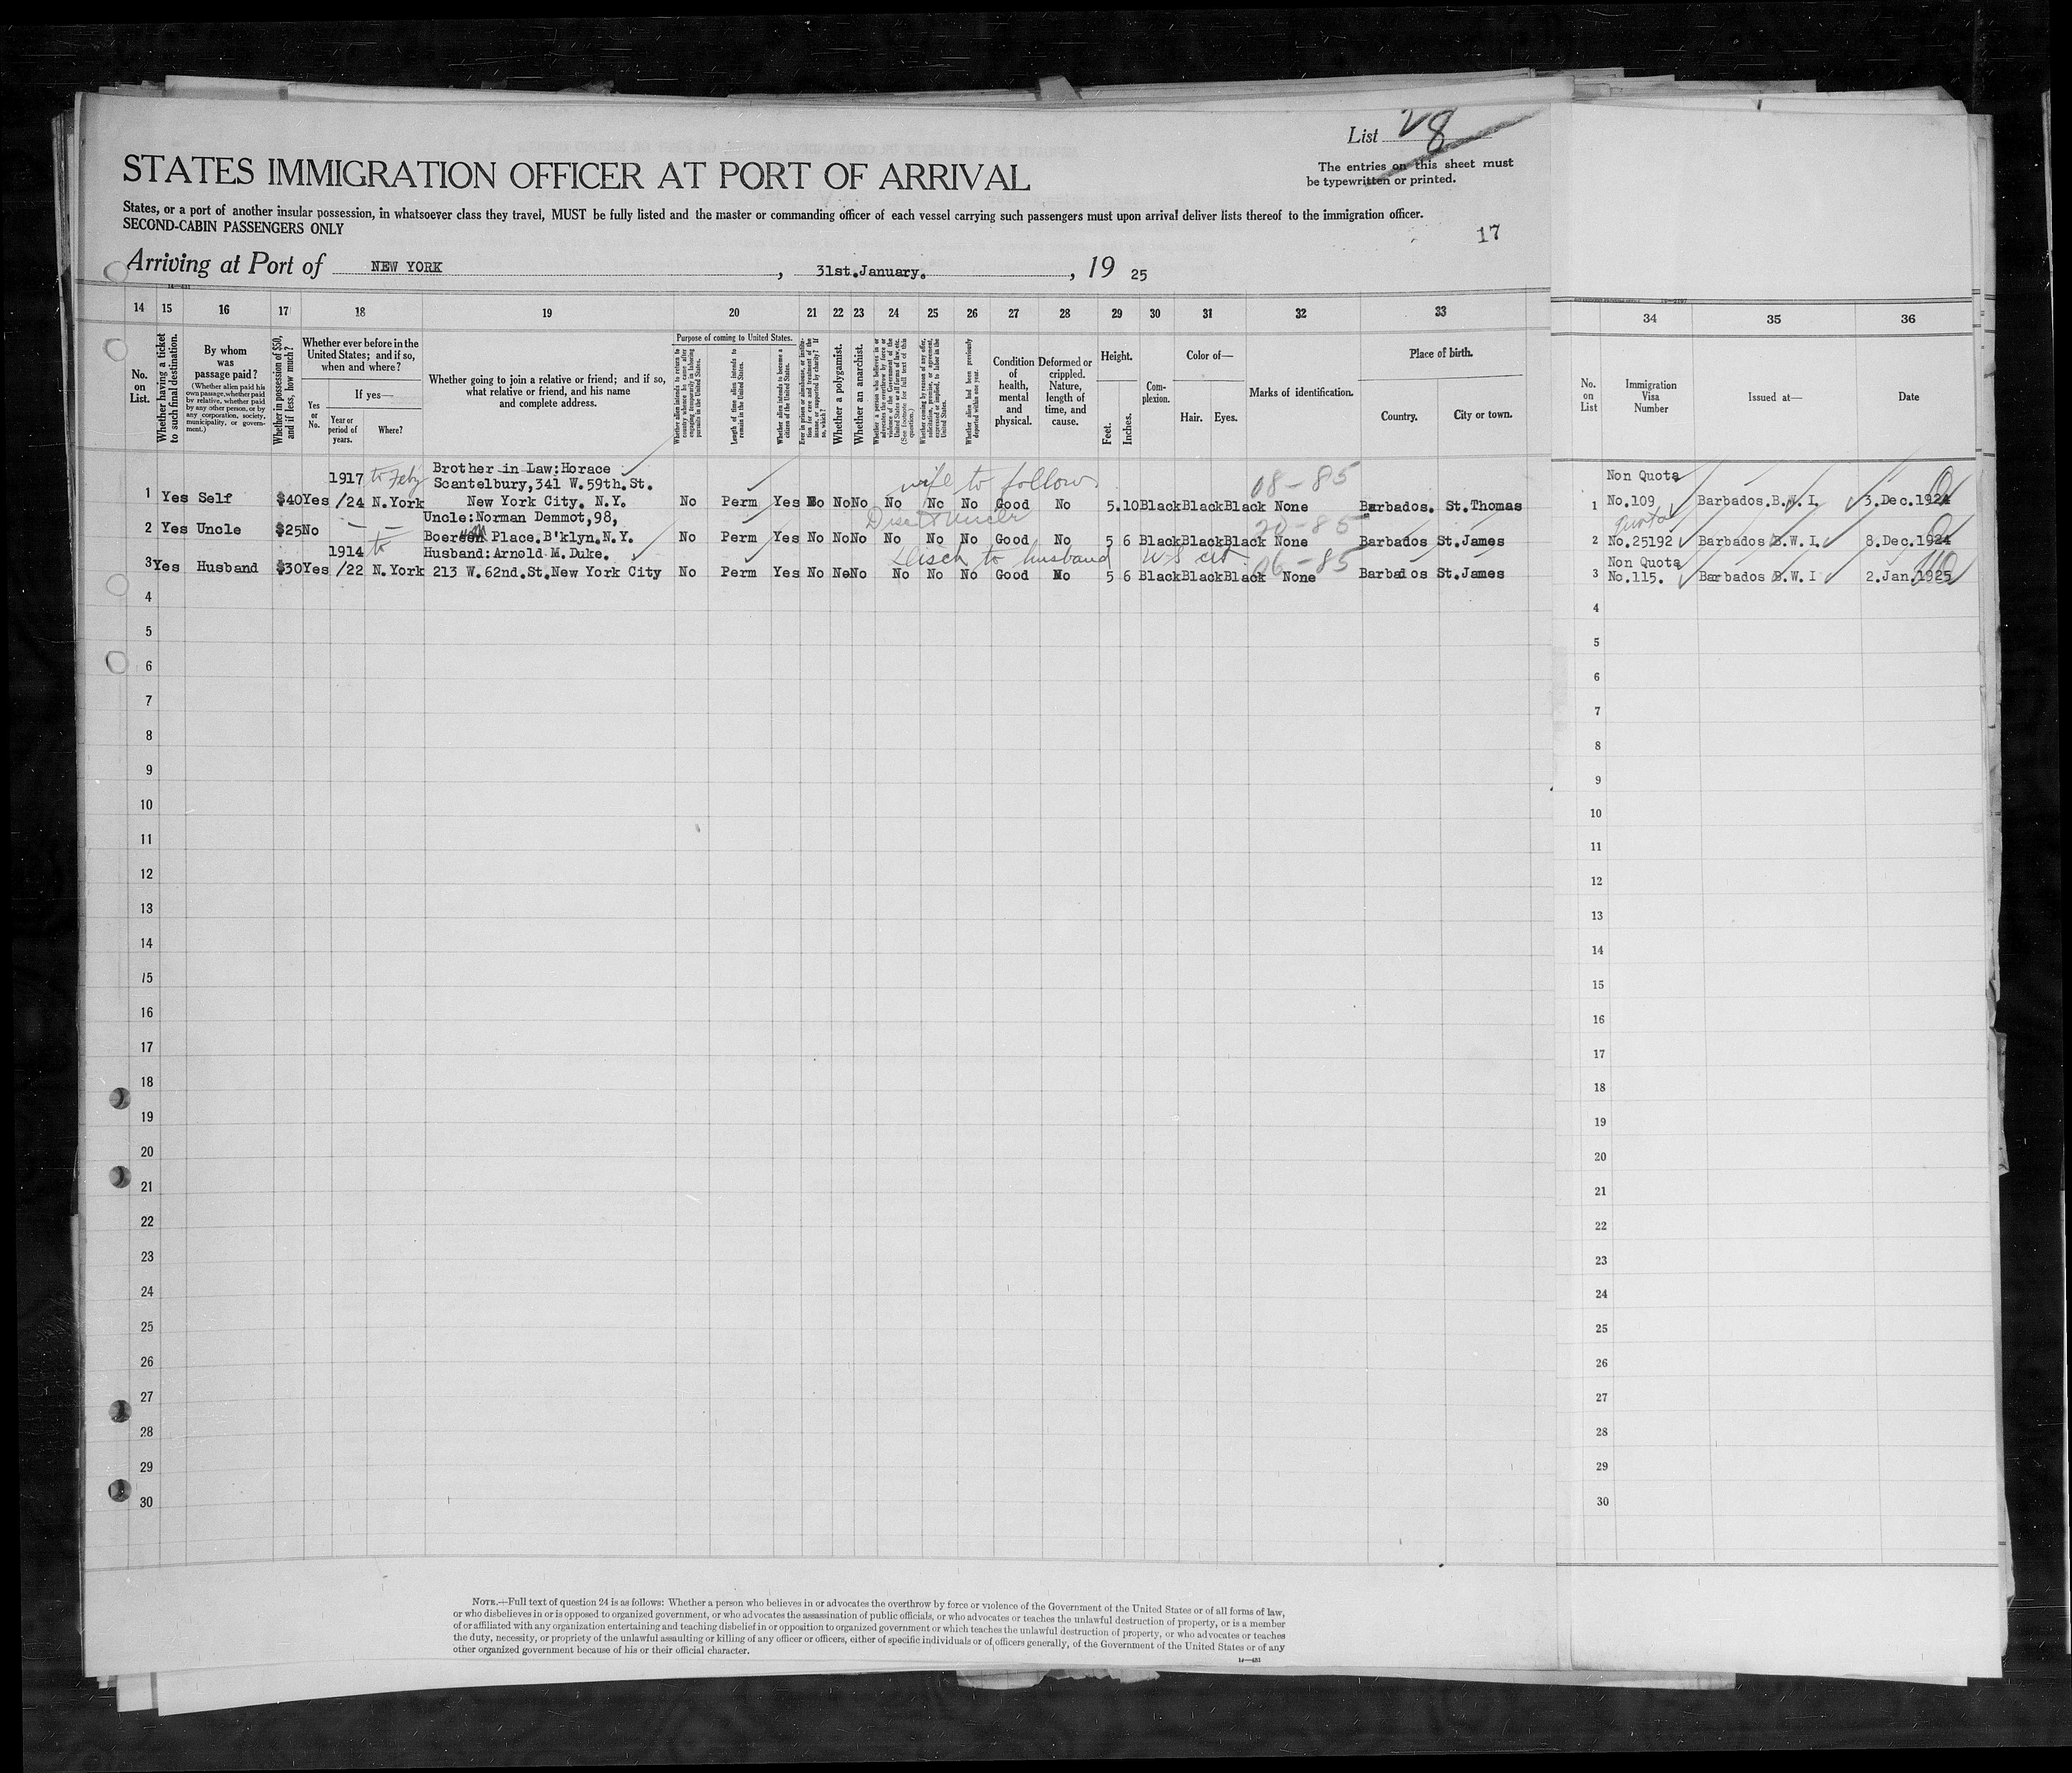 List 28
The entries on this sheet must
be typewritten or printed.
STATES IMMIGRATION OFFICER AT PORT OF ARRIVAL
States, or a port of another insular possession, in whatsoever class they travel, MUST be fully listed and the master or commanding officer of each vessel carrying such passengers must upon arrival deliver lists thereof to the immigration officer.
SECOND-CABIN PASSENGERS ONLY
17
Arriving at Port of NEW YORK, 31st.January., 19 25
14 15 16 17 18 19 20 21 22 23 24 25 26 27 28 29 30 31 32 33 34 35 36
No. on List.
Whether having a ticket to such final destination.
By whom was passage paid?
(Whether alien paid his own passage, whether paid by relative, whether paid by any other person, or by any corporation, society, municipality, or government.)
Whether in possession of $50, and if less, how much?
Whether ever before in the United States; and if so, when and where?
Yes or No.
If yes—
Year or period of years.
Where?
Whether going to join a relative or friend; and if so, what relative or friend, and his name and complete address.
Purpose of coming to United States.
Length of time alien intends to remain in the United States.
Whether alien intends to become a citizen of the United States.
Whether a polygamist.
Whether an anarchist.
Whether alien had been previously deported within one year.
Condition of health, mental and physical.
Deformed or crippled. Nature, length of time, and cause.
Height.
Feet. Inches.
Complexion.
Color of—
Hair. Eyes.
Marks of identification.
Place of birth.
Country. City or town.
No. on List
Immigration Visa Number
Issued at—
Date
1917 to Feby Brother in Law:Horace
Scantelbury,341 W.59th.St. wife to follow 08-85 Non Quota
1 Yes Self $40 Yes /24 N.York New York City. N.Y. No Perm Yes No No No No No No Good No 5.10 Black Black Black None Barbados. St.Thomas 1 No.109 Barbados.B.W.I. 3.Dec.1924
Uncle:Norman Demmot,98, Disc to Uncle 20-85 Quota
2 Yes Uncle $25 No — — Boereem Place.B'klyn.N.Y. No Perm Yes No No No No No No Good No 5 6 Black Black Black None Barbados St.James 2 No.25192 Barbados B.W.I. 8.Dec.1924
1914 to Husband:Arnold M.Duke. Disch to husband U-S cit 06-85 Non Quota
3 Yes Husband $30 Yes /22 N.York 213 W.62nd.St.New York City No Perm Yes No No No No No No Good No 5 6 Black Black Black None Barbados St.James 3 No.115. Barbados B.W.I 2.Jan.1925
4 4
5 5
6 6
7 7
8 8
9 9
10 10
11 11
12 12
13 13
14 14
15 15
16 16
17 17
18 18
19 19
20 20
21 21
22 22
23 23
24 24
25 25
26 26
27 27
28 28
29 29
30 30
NOTE.—Full text of question 24 is as follows: Whether a person who believes in or advocates the overthrow by force or violence of the Government of the United States or of all forms of law,
or who disbelieves in or is opposed to organized government, or who advocates the assassination of public officials, or who advocates or teaches the unlawful destruction of property, or is a member
of or affiliated with any organization entertaining and teaching disbelief in or opposition to organized government or which teaches the unlawful destruction of property, or who advocates or teaches
the duty, necessity, or propriety of the unlawful assaulting or killing of any officer or officers, either of specific individuals or of officers generally, of the Government of the United States or of any
other organized government because of his or their official character.
14—431